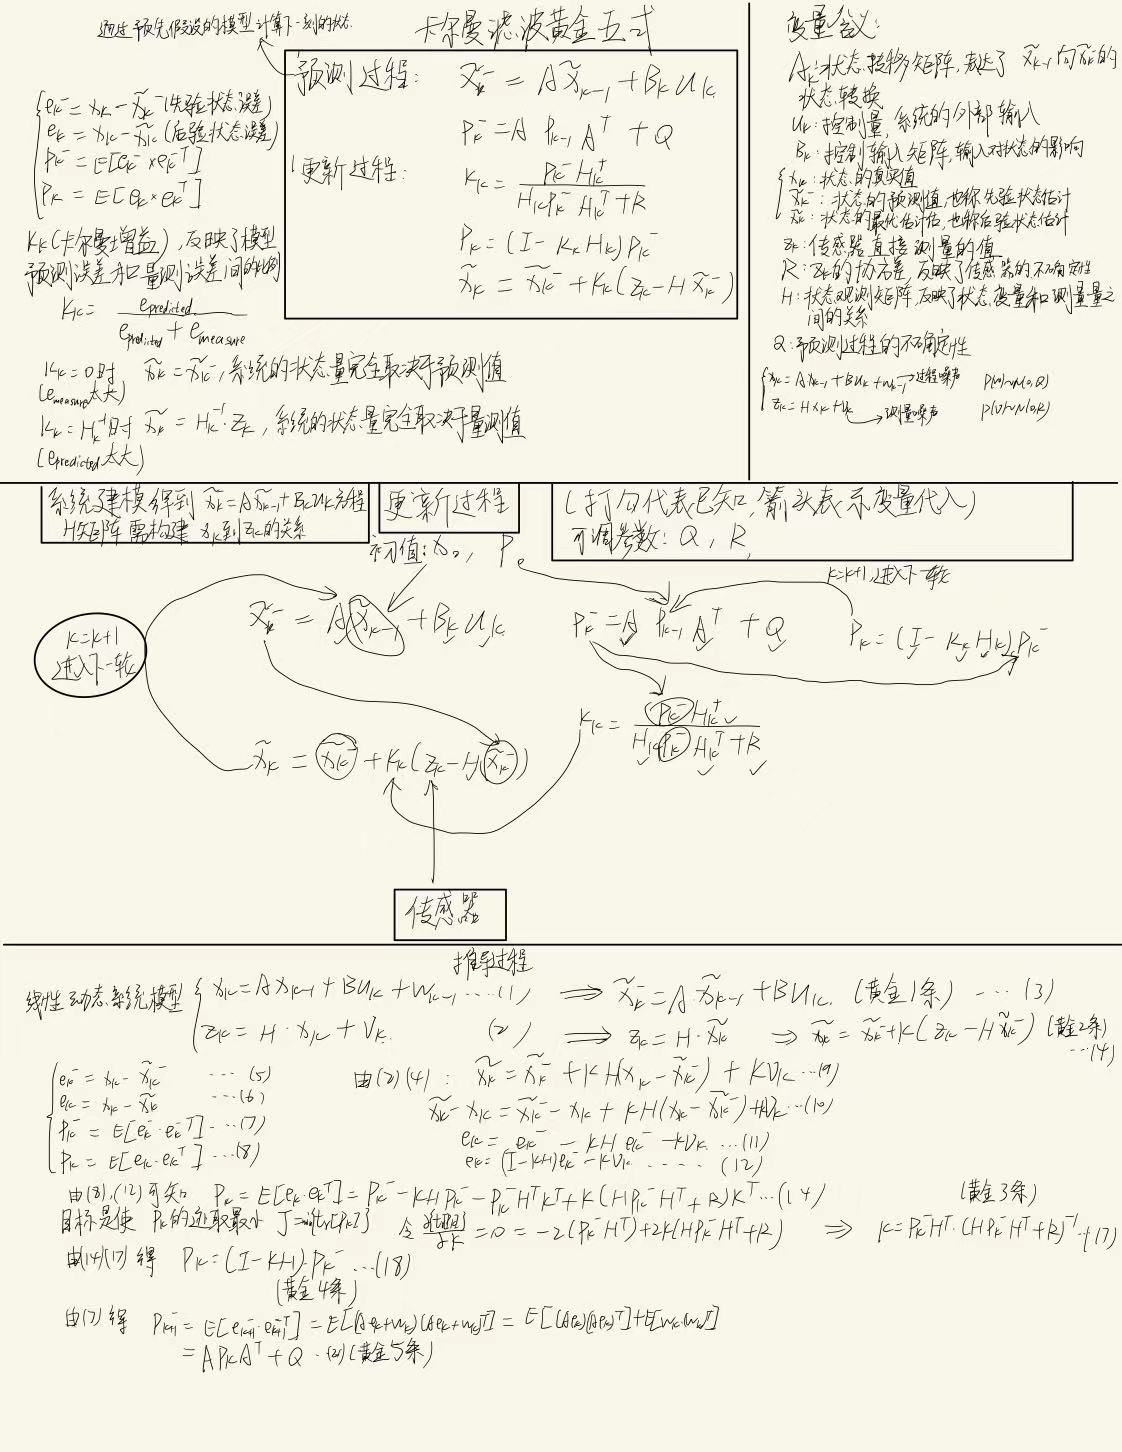 卡尔曼滤波黄金五式
通过预先假设的模型计算下一刻的状态
预测过程: x̃ₖ⁻ = Ax̃ₖ₋₁ + Bₖuₖ
Pₖ⁻ = A Pₖ₋₁ Aᵀ + Q
更新过程: Kₖ = Pₖ⁻Hₖᵀ / (HₖPₖ⁻Hₖᵀ + R)
Pₖ = (I - KₖHₖ)Pₖ⁻
x̃ₖ = x̃ₖ⁻ + Kₖ(zₖ - Hx̃ₖ⁻)
eₖ⁻ = xₖ - x̃ₖ⁻ (先验状态误差)
eₖ = xₖ - x̃ₖ (后验状态误差)
Pₖ⁻ = E[eₖ⁻×eₖ⁻ᵀ]
Pₖ = E[eₖ×eₖᵀ]
Kₖ(卡尔曼增益), 反映了模型
预测误差和量测误差间的比例
Kₖ = e_predicted / (e_predicted + e_measure)
Kₖ=0时 x̃ₖ = x̃ₖ⁻, 系统的状态量完全取决于预测值
(e_measure太大)
Kₖ=Hₖ⁻¹时 x̃ₖ = Hₖ⁻¹·zₖ, 系统的状态量完全取决于量测值
(e_predicted太大)
变量含义:
Aₖ: 状态转移矩阵, 表达了 x̃ₖ₋₁向x̃ₖ⁻的
状态转换
uₖ: 控制量, 系统的外部输入
Bₖ: 控制输入矩阵, 输入对状态的影响
xₖ: 状态的真实值
x̃ₖ⁻: 状态的预测值, 也称先验状态估计
x̃ₖ: 状态的最优估计值, 也称后验状态估计
zₖ: 传感器直接测量的值
R: zₖ的协方差, 反映了传感器的不确定性
H: 状态观测矩阵, 反映了状态变量和测量量之
间的关系
Q: 预测过程的不确定性
xₖ = Axₖ₋₁ + Buₖ + wₖ₋₁ → 过程噪声 p(w)~N(0,Q)
zₖ = Hxₖ + vₖ → 测量噪声 p(v)~N(0,R)
系统建模得到 x̃ₖ⁻ = Ax̃ₖ₋₁ + Bₖuₖ方程
H矩阵需构建 xₖ到zₖ的关系
更新过程
(打勾代表已知, 箭头表示变量代入)
可调参数: Q, R
初值: x₀, P₀
k=k+1, 进入下一轮
x̃ₖ⁻ = Ax̃ₖ₋₁ + Bₖuₖ
Pₖ⁻ = A Pₖ₋₁ Aᵀ + Q
Pₖ = (I - KₖHₖ)Pₖ⁻
k=k+1
进入下一轮
Kₖ = Pₖ⁻Hₖᵀ / (HₖPₖ⁻Hₖᵀ + R)
x̃ₖ = x̃ₖ⁻ + Kₖ(zₖ - Hx̃ₖ⁻)
传感器
推导过程
线性动态系统模型
xₖ = Axₖ₋₁ + Buₖ + wₖ₋₁ ····(1) ⇒ x̃ₖ⁻ = A·x̃ₖ₋₁ + Buₖ (黄金1条) ···(3)
zₖ = H·xₖ + Vₖ (2) ⇒ zₖ = H·x̃ₖ ⇒ x̃ₖ = x̃ₖ⁻ + K(zₖ - Hx̃ₖ⁻) (黄金2条)
···(4)
eₖ⁻ = xₖ - x̃ₖ⁻ ···(5)
eₖ = xₖ - x̃ₖ ···(6)
Pₖ⁻ = E[eₖ⁻·eₖ⁻ᵀ] ···(7)
Pₖ = E[eₖ·eₖᵀ] ···(8)
由(2)(4): x̃ₖ = x̃ₖ⁻ + KH(xₖ - x̃ₖ⁻) + KVₖ ···(9)
x̃ₖ - xₖ = x̃ₖ⁻ - xₖ + KH(xₖ - x̃ₖ⁻) + KVₖ ···(10)
eₖ = eₖ⁻ - KHeₖ⁻ - KVₖ ···(11)
eₖ = (I - KH)eₖ⁻ - KVₖ ···· (12)
由(8),(12)可知 Pₖ = E[eₖ·eₖᵀ] = Pₖ⁻ - KHPₖ⁻ - Pₖ⁻HᵀKᵀ + K(HPₖ⁻Hᵀ + R)Kᵀ ···(14) (黄金3条)
目标是使 Pₖ的迹取最小 令 = 0 = -2(Pₖ⁻Hᵀ) + 2K(HPₖ⁻Hᵀ + R) ⇒ K = Pₖ⁻Hᵀ·(HPₖ⁻Hᵀ + R)⁻¹ ··(17)
由(14)(17)得 Pₖ = (I - KH)·Pₖ⁻ ···(18)
(黄金4条)
由(7)得 Pₖ₊₁⁻ = E[eₖ₊₁⁻·eₖ₊₁⁻ᵀ] = E[(Aeₖ+wₖ)(Aeₖ+wₖ)ᵀ] = E[(Aeₖ)(Aeₖ)ᵀ] + E[wₖ(wₖ)ᵀ]
= APₖAᵀ + Q ··(21) (黄金5条)